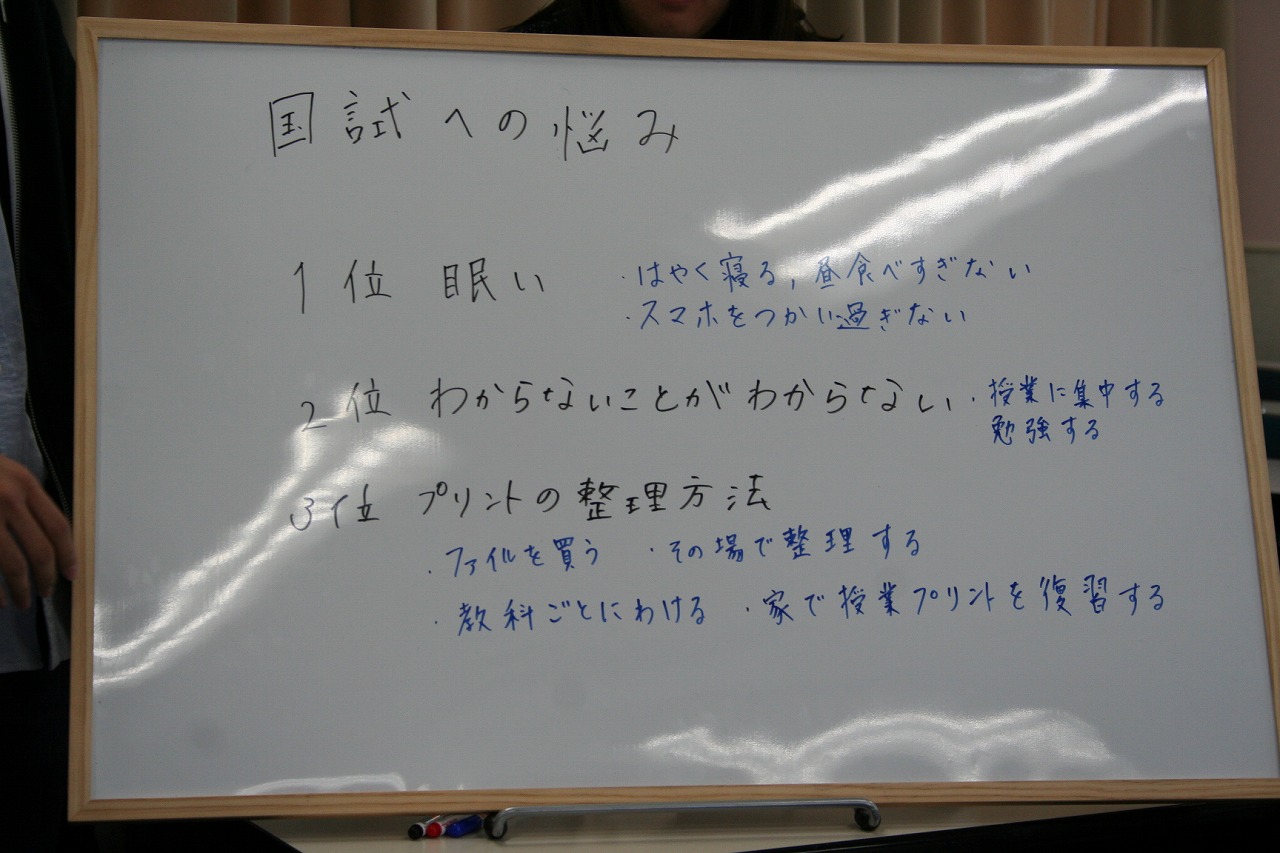 国試への悩み
1位 眠い ・はやく寝る, 昼食べすぎない
・スマホをつかい過ぎない
2位 わからないことがわからない ・授業に集中する
勉強する
3位 プリントの整理方法
・ファイルを買う ・その場で整理する
・教科ごとにわける ・家で授業プリントを復習する